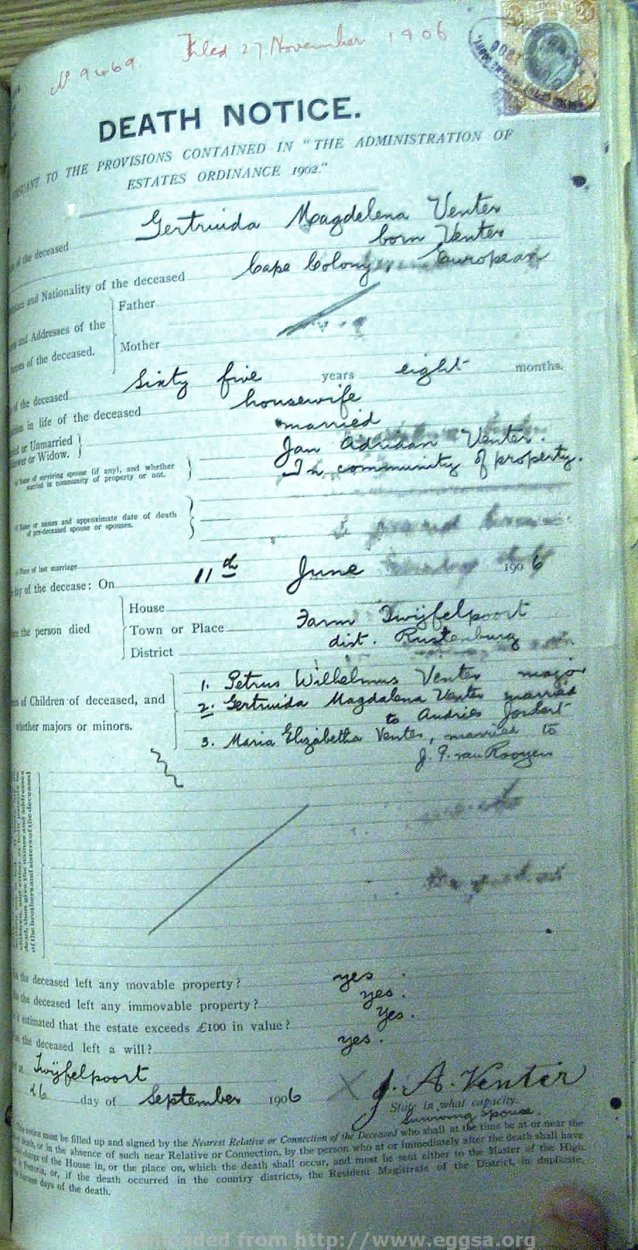 No 9469 Filed 27 November 1906
DEATH NOTICE.
TO THE PROVISIONS CONTAINED IN "THE ADMINISTRATION OF
ESTATES ORDINANCE 1902."
of the deceased Gertruida Magdelena Venter
born Venter
and Nationality of the deceased Cape Colony, European
and Addresses of the
of the deceased.
Father
Mother
of the deceased Sixty five years eight months.
in life of the deceased housewife
or Unmarried
or Widow.
married
Name of surviving spouse (if any), and whether
married in community of property or not.
Jan Adriaan Venter.
In community of property.
Name or names and approximate date of death
of pre-deceased spouse or spouses.
Place of last marriage
of the decease: On 11th June 1906
the person died
House
Town or Place Farm Twijfelpoort
District dist. Rustenburg
of Children of deceased, and
whether majors or minors.
1. Petrus Wilhelmus Venter major
2. Gertruida Magdalena Venter married
to Andries Joubert
3. Maria Elizabetha Venter, married to
J. P. van Rooyen
death, then give the names and addresses
of the brothers and sisters of the deceased
the deceased left any movable property? yes.
the deceased left any immovable property? yes.
estimated that the estate exceeds £100 in value? Yes.
the deceased left a will? yes.
at Twijfelpoort
26 day of September 1906 X J. A. Venter
State in what capacity.
Surviving spouse.
notice must be filled up and signed by the Nearest Relative or Connection of the Deceased who shall at the time be at or near the
death, or in the absence of such near Relative or Connection, by the person who at or immediately after the death shall have
charge of the House in, or the place on, which the death shall occur, and must be sent either to the Master of the High
Pretoria, or, if the death occurred in the country districts, the Resident Magistrate of the District, in duplicate,
days of the death.
Downloaded from http://www.eggsa.org